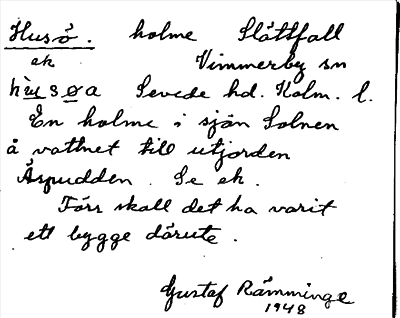 Husö. holme Slåttfall
ek Vimmerby sn
hùsøa Sevede hd. Kalm. l.
En holme i sjön Solnen
å vattnet till utjorden
Äspudden. Se ek.
Förr skall det ha varit
ett bygge därute.
Gustaf Rämminge
1948